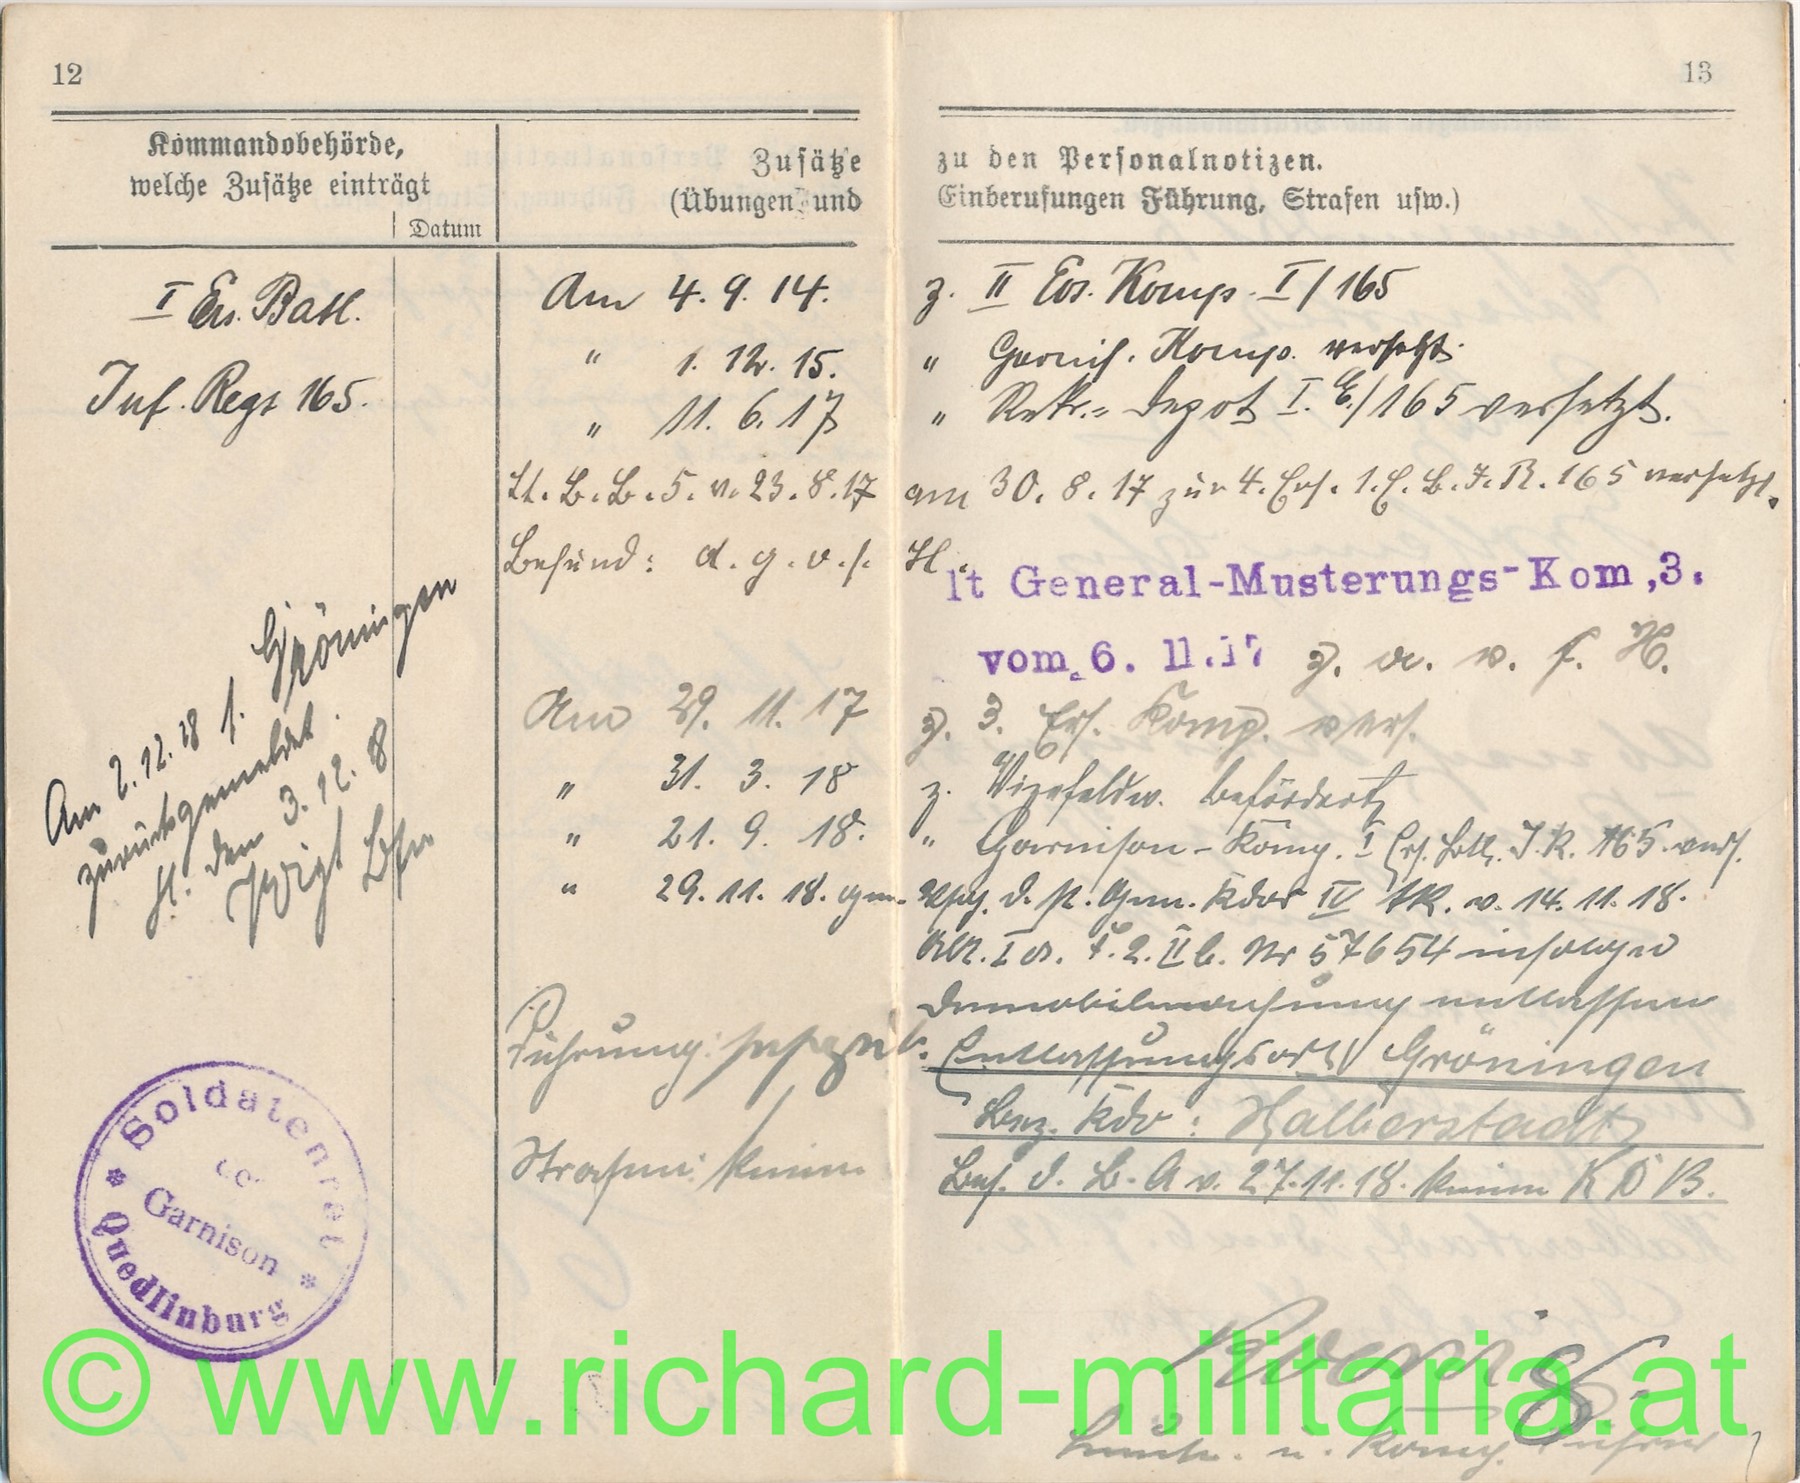 12
13
Kommandobehörde,
welche Zusätze einträgt
Datum
Zusätze
(Übungen und
zu den Personalnotizen.
Einberufungen Führung, Strafen usw.)
I Ers. Batl.
Inf. Regt 165.
Am 4. 9. 14. z. II Ers. Komp. I/165
" 1. 12. 15. " Garnis. Komp. versetzt.
" 11. 6. 17 " Rekr.= Depot I. E./165 versetzt.
Lt. B. B. 5. v. 23. 8. 17 am 30. 8. 17 zur 4. Ers. 1. E. B. I. R. 165 versetzt.
Befund: d. g. v. f. H.
lt General-Musterungs-Kom, 3.
vom 6. 11.17 z. a. v. f. H.
Am 29. 11. 17 z. 3. Ers. Komp. vers.
" 31. 3. 18 z. Vizefeldw. befördert
" 21. 9. 18. " Garnison-Komp. I Ers. Btl. I. R. 165. vers.
" 29. 11. 18. gem. Vfg. d. st. Gen. Kdos IV AK. v. 14. 11. 18.
Nr 57654 infolge
Demobilmachung entlassen
Führung: sehr gut. Entlassungsort Gröningen
Bez. Kdo: Halberstadt
Strafen: keine
Bef. d. B. A v. 27. 11. 18. keine K D B.
Am 2. 12. 18 f. Gröningen
zurückgemeldet.
H. den 3. 12. 18
Voigt Bfw
Soldatenrat
der
Garnison
Quedlinburg
u. Komp. Führer
© www.richard-militaria.at